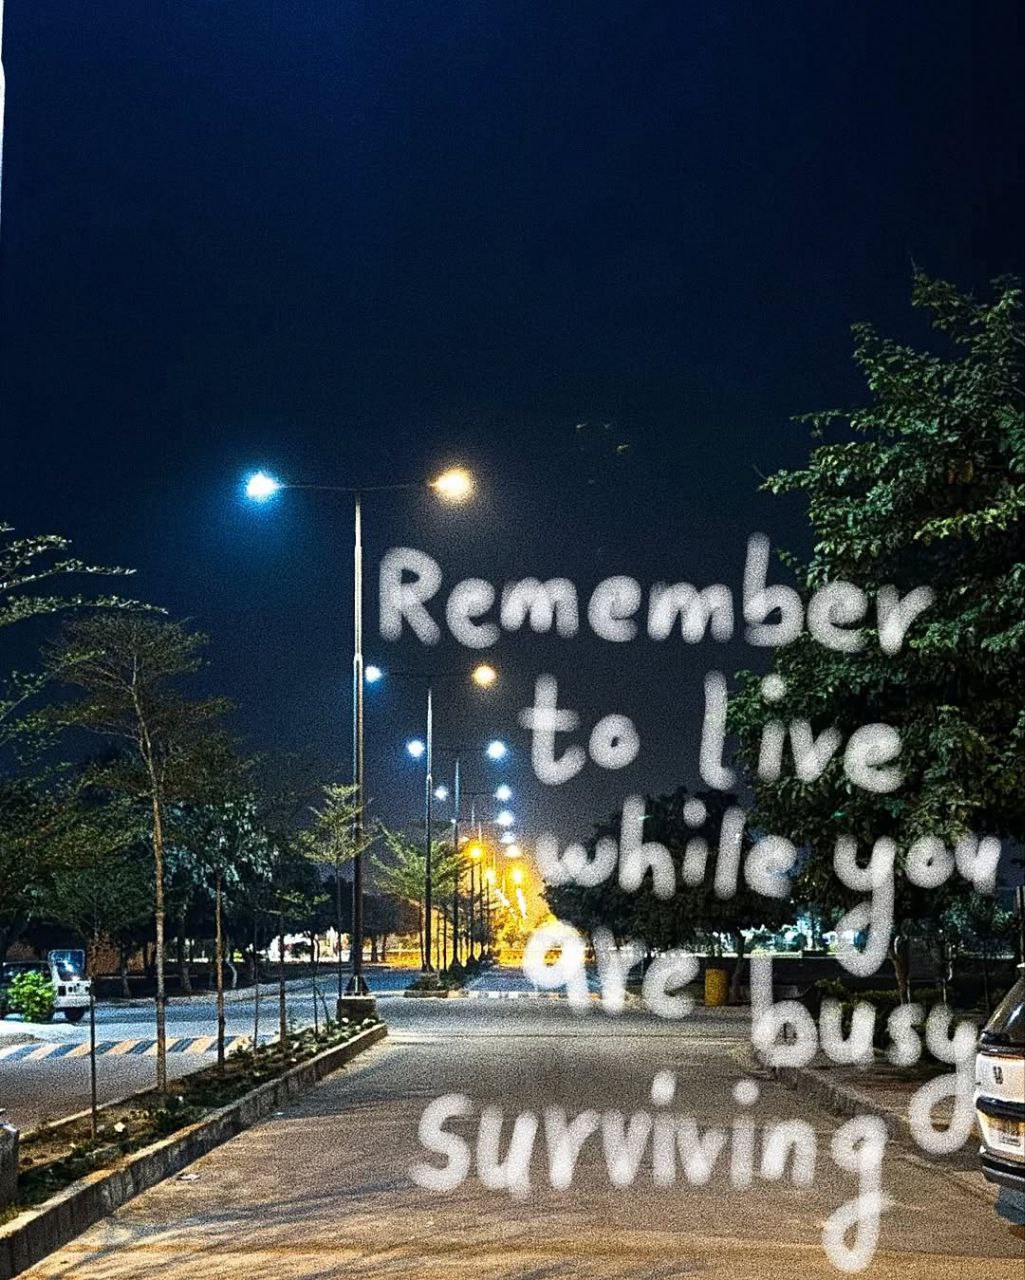 Remember
to live
while you
are busy
surviving